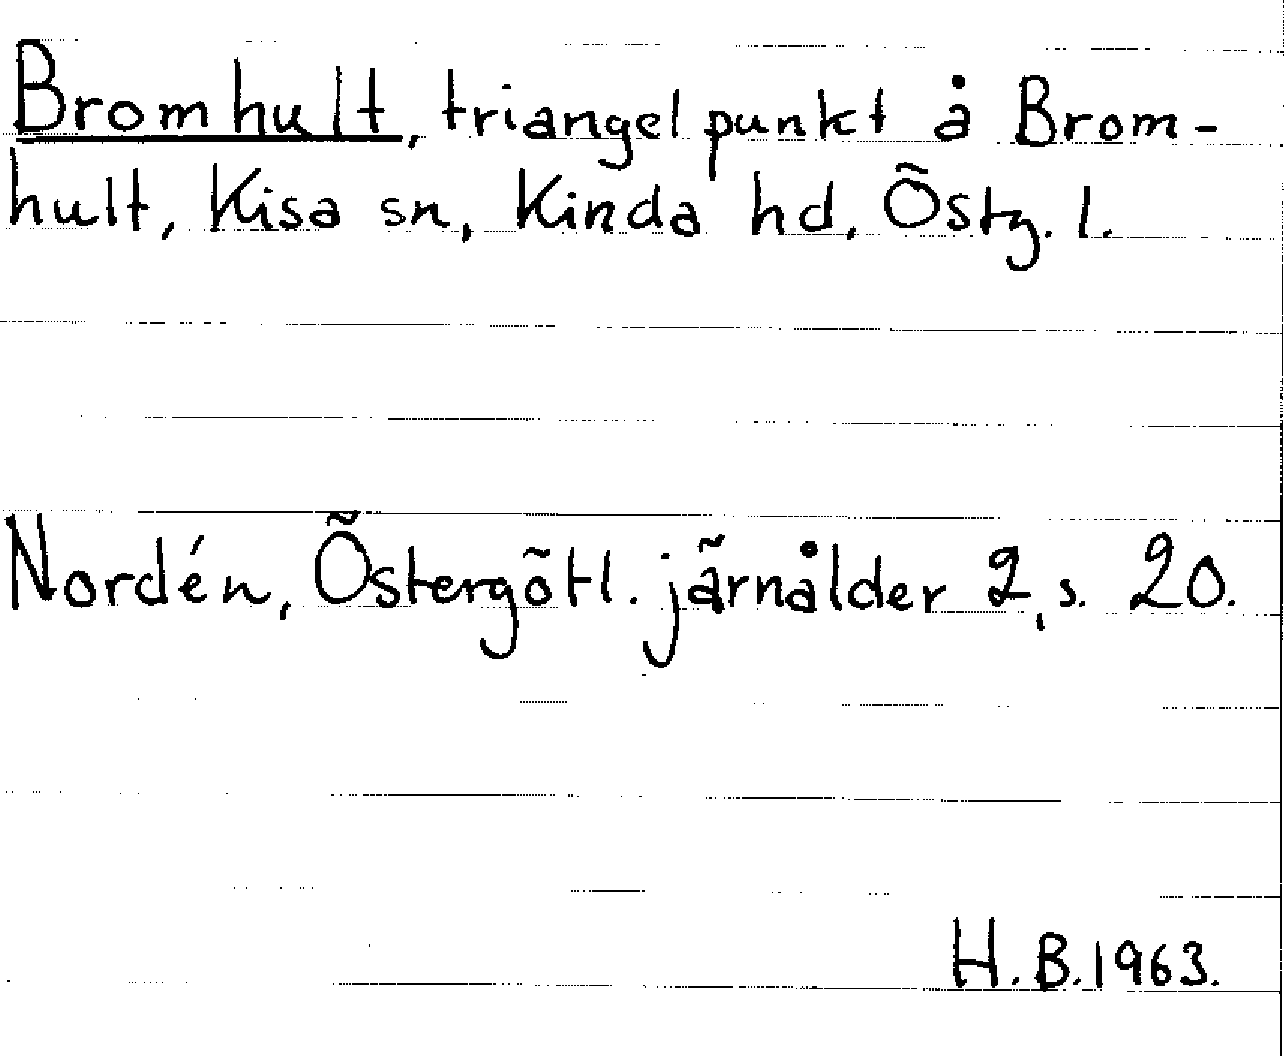 Bromhult, triangelpunkt å Brom-
hult, Kisa sn, Kinda hd, Östg. l.
Nordén, Östergötl. järnålder 2, s. 20.
H. B. 1963.